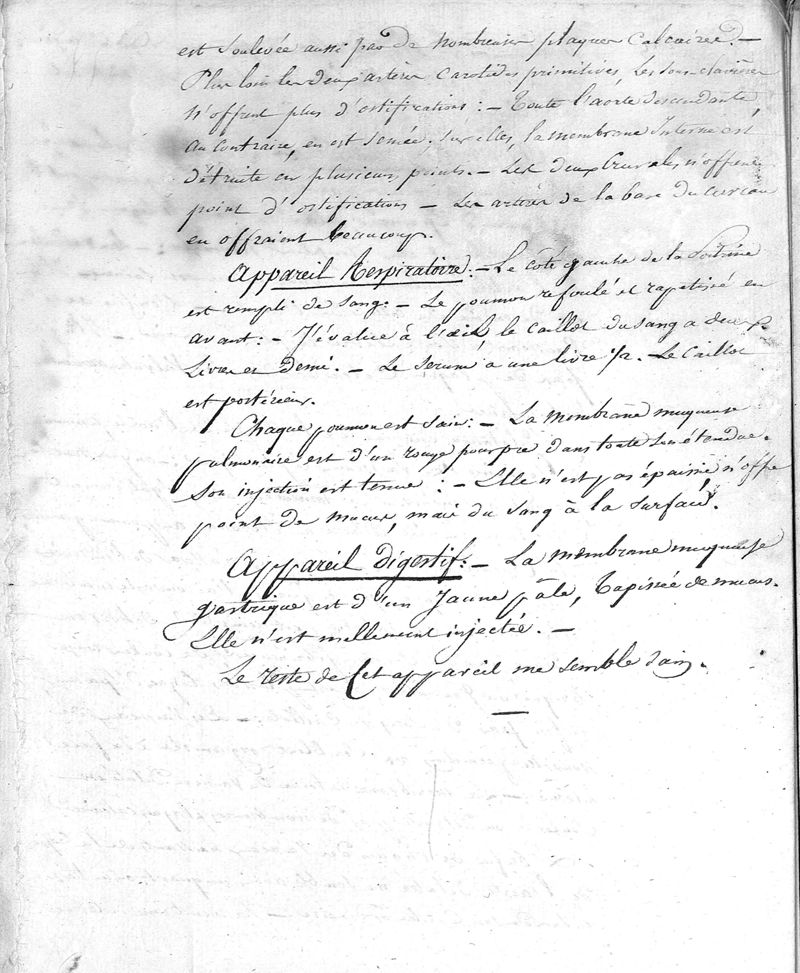 est soulevée aussi par de nombreuses plaques calcaires. —
Plus loin les deux artères carotides primitives, les sous-clavières
n'offrent plus d'ossifications : — Toute l'aorte descendante,
au contraire, en est semée. sur elles, la membrane interne est
détruite en plusieurs points. — Les deux crurales n'offrent
point d'ossifications — Les artères de la base du cerveau
en offraient beaucoup.
Appareil Respiratoire : — Le côté gauche de la Poitrine
est rempli de sang. — Le poumon refoulé et rapetissé en
avant : — J'évalue à l'œil, le caillot du sang a deux
Livres et demi. — Le serum a une livre 1/2. — Le Caillot
est postérieur.
Chaque poumon est sain : — La membrane muqueuse
pulmonaire est d'un rouge pourpre dans toute son étendue.
Son injection est tenue : — Elle n'est pas épaissie, n'offre
point de mucus, mais du sang à la surface.
Appareil Digestif : — La membrane muqueuse
gastrique est d'un Jaune pâle, Tapissée de mucus.
Elle n'est nullement injectée. —
Le reste de Cet appareil me semble sain.